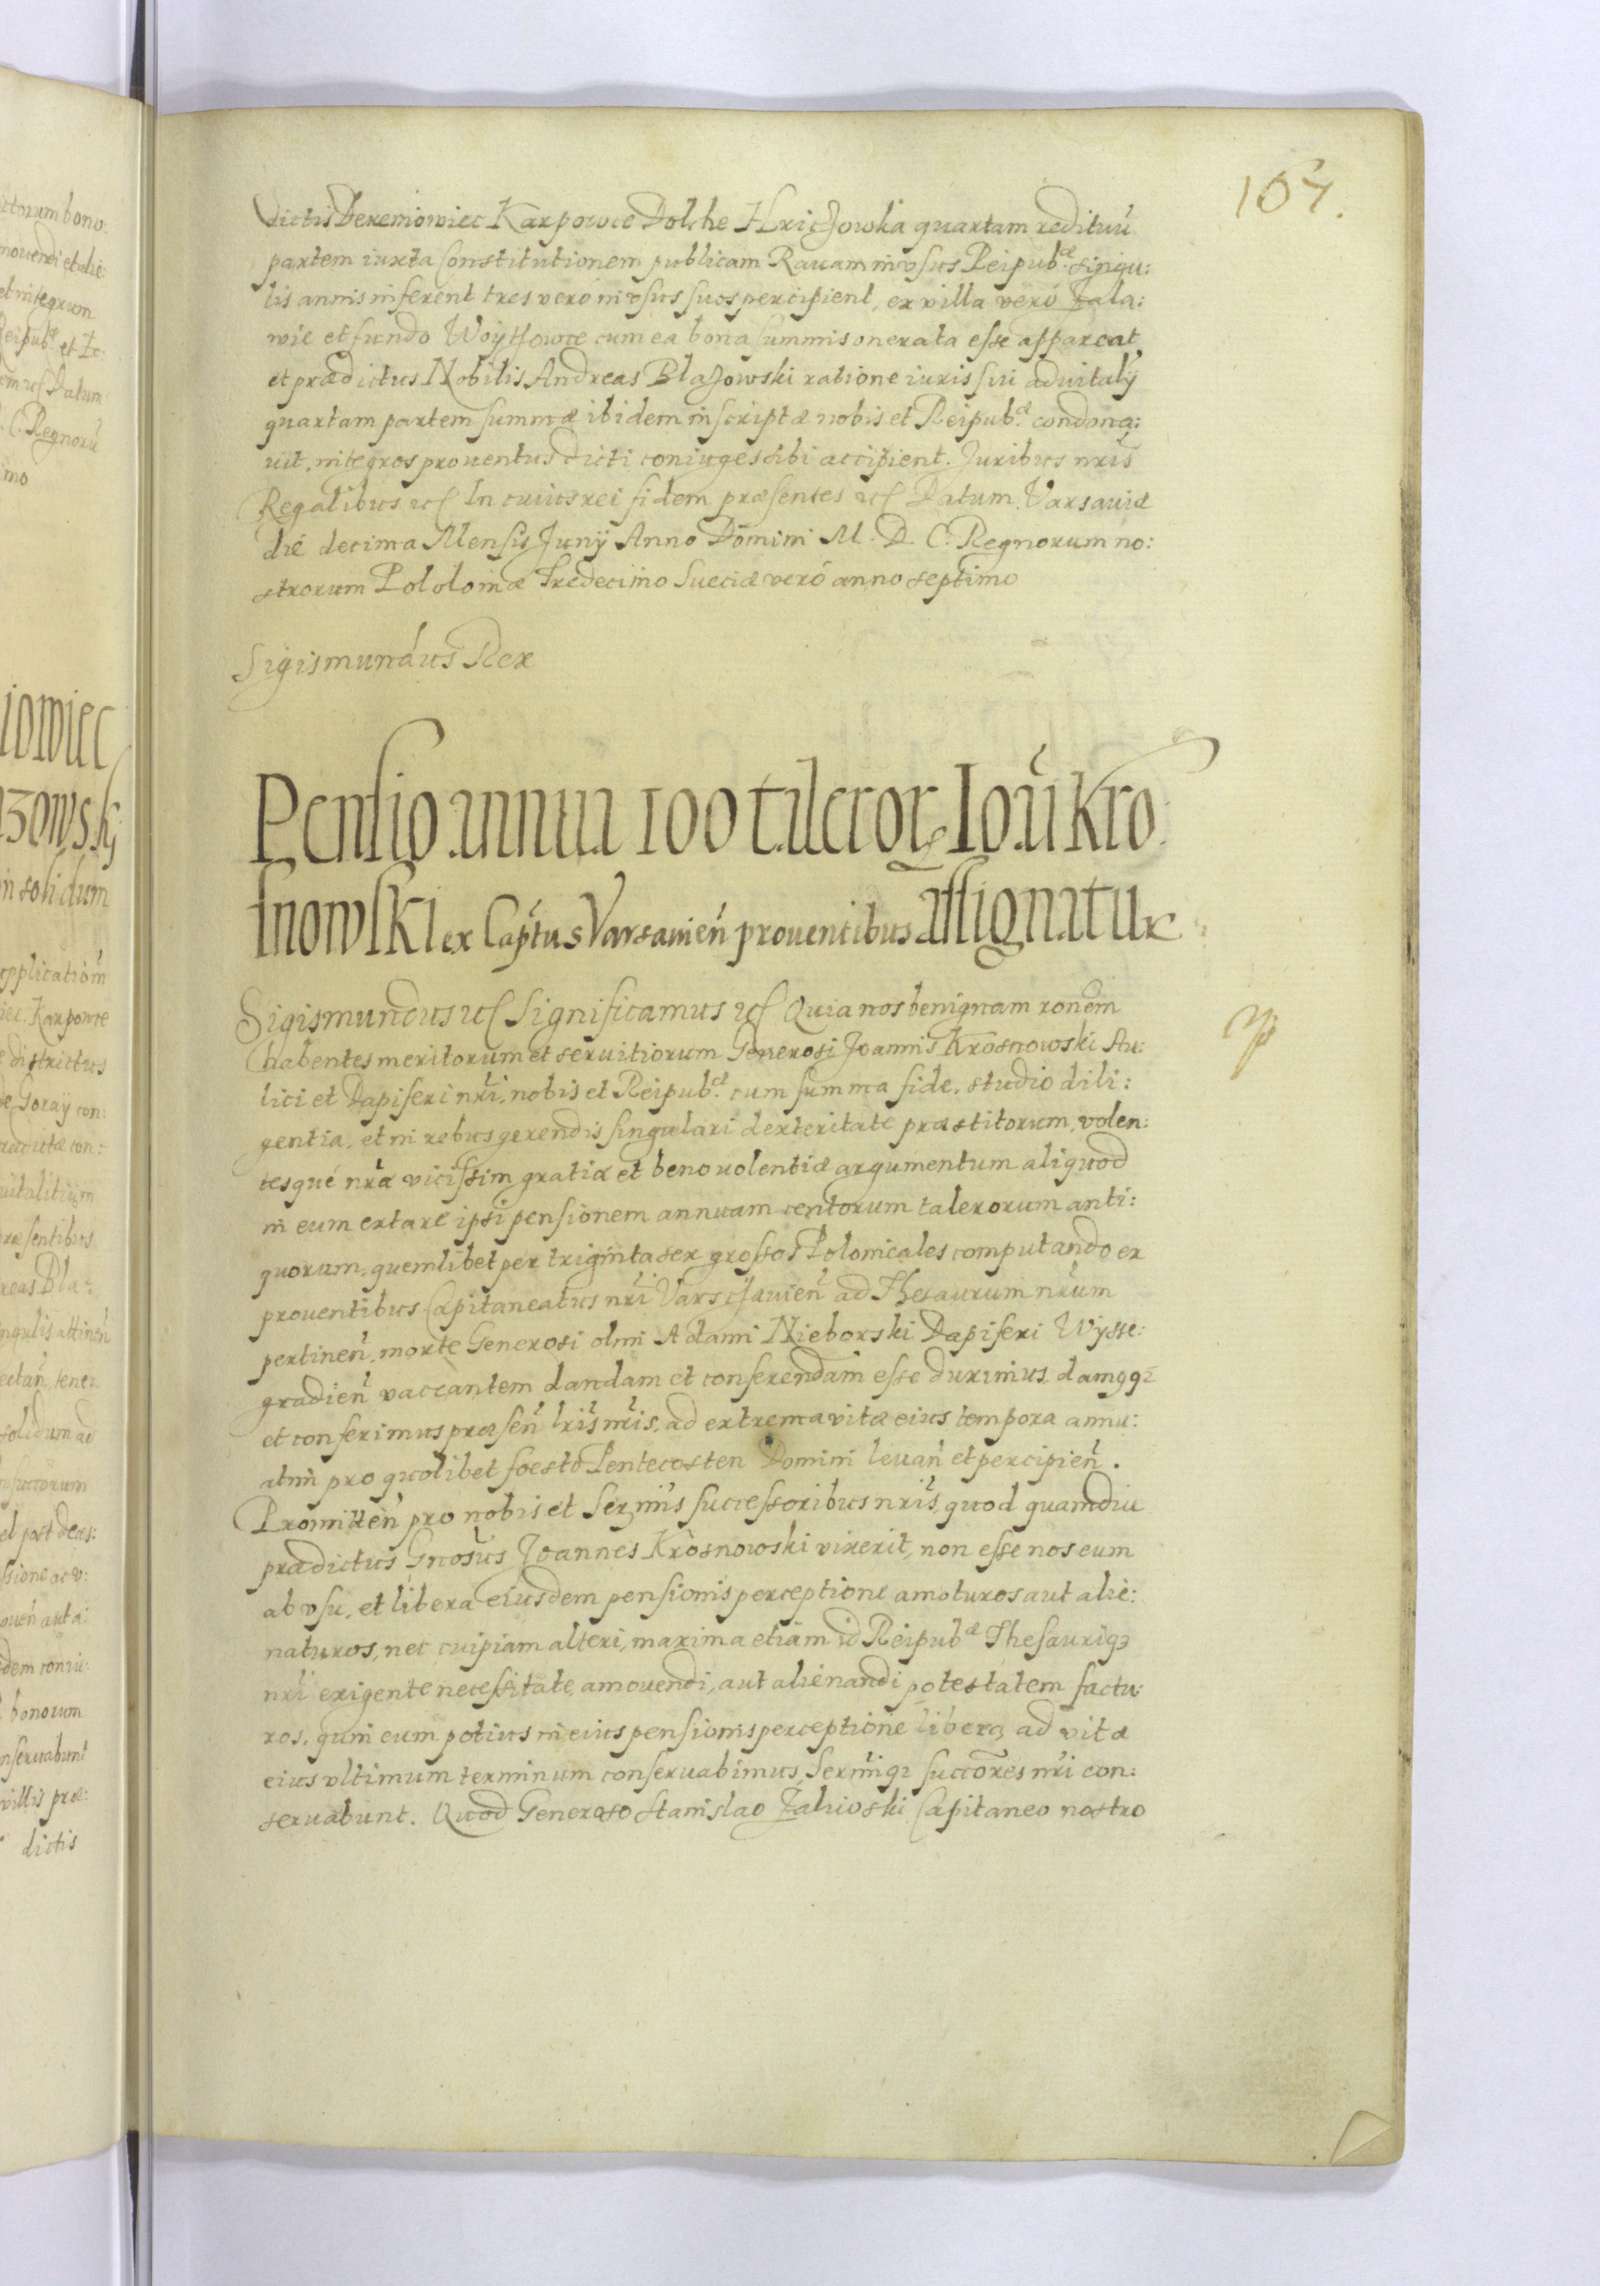 167.
dictis Deremiowiec Karpowce Dolche Hriczowka quartam redituū
partem iuxta Constitutionem publicam Rauam in vsus Reipub.æ singu:
lis annis inferent tres vero in vsus suos percipient, ex villa vero Zala:
wie et fundo Woytowce cum ea bona summis onerata esse appareat
et prædictus Nobilis Andreas Blazowski ratione iuris sui aduitalÿ
quartam partem summæ ibidem inscriptæ nobis et Reipub.æ condona:
uit, integros prouentus dicti coniuges sibi accipient. Juribus nris
Regalibus etc In cuius rei fidem præsentes etc Datum Varsauiæ
die decima Mensis Junÿ Anno Domini M. D. C. Regnorum no:
strorum Pololoniæ Tredecimo Sueciæ vero anno septimo
Sigismundus Rex
Pensio annua 100 talerorum Ioañ Kro:
snowski ex Captus Varsauien prouentibus assignatur
Sigismundus etc Significamus etc Quia nos benignam ronem
habentes meritorum et seruitiorum Generosi Joannis Krosnowski Au:
lici et Dapiferi nri, nobis et Reipub.æ cum summa fide, studio dili:
gentia, et in rebus gerendis singulari dexteritate præstitorum, volen:
tesque nræ vicissim gratiæ et beneuolentiæ argumentum aliquod
in eum extare ipsi pensionem annuam centorum talerorum anti:
quorum, quemlibet per triginta sex grossos Polonicales computando ex
prouentibus Capitaneatus nri Varschauien ad Thesaurum nrum
pertinen, morte Generosi olim Adami Nieborski Dapiferi Wysse:
gradien vaccantem dandam et conferendam esse duximus, damusque
et conferimus præsen lris nris, ad extrema vitæ eius tempora annu:
atim pro quolibet foesto Pentecosten Domini leuan et percipien.
Promitten pro nobis et Sermis successoribus nris, quod quamdiu
prædictus Gnosus Joannes Krosnowski vixerit, non esse nos eum
ab vsu, et libera eiusdem pensionis perceptione amoturos aut alie:
naturos, nec cuipiam alteri, maxima etiam id Reipub.æ Thesaurique
nri exigente necessitate amouendi, aut alienandi potestatem factu
ros, quin eum potius in eius pensionis perceptione libera ad vitæ
eius vltimum terminum conseruabimus, Sermique succores nri con:
seruabunt. Quod Generoso Stanislao Zalioski Capitaneo nostro